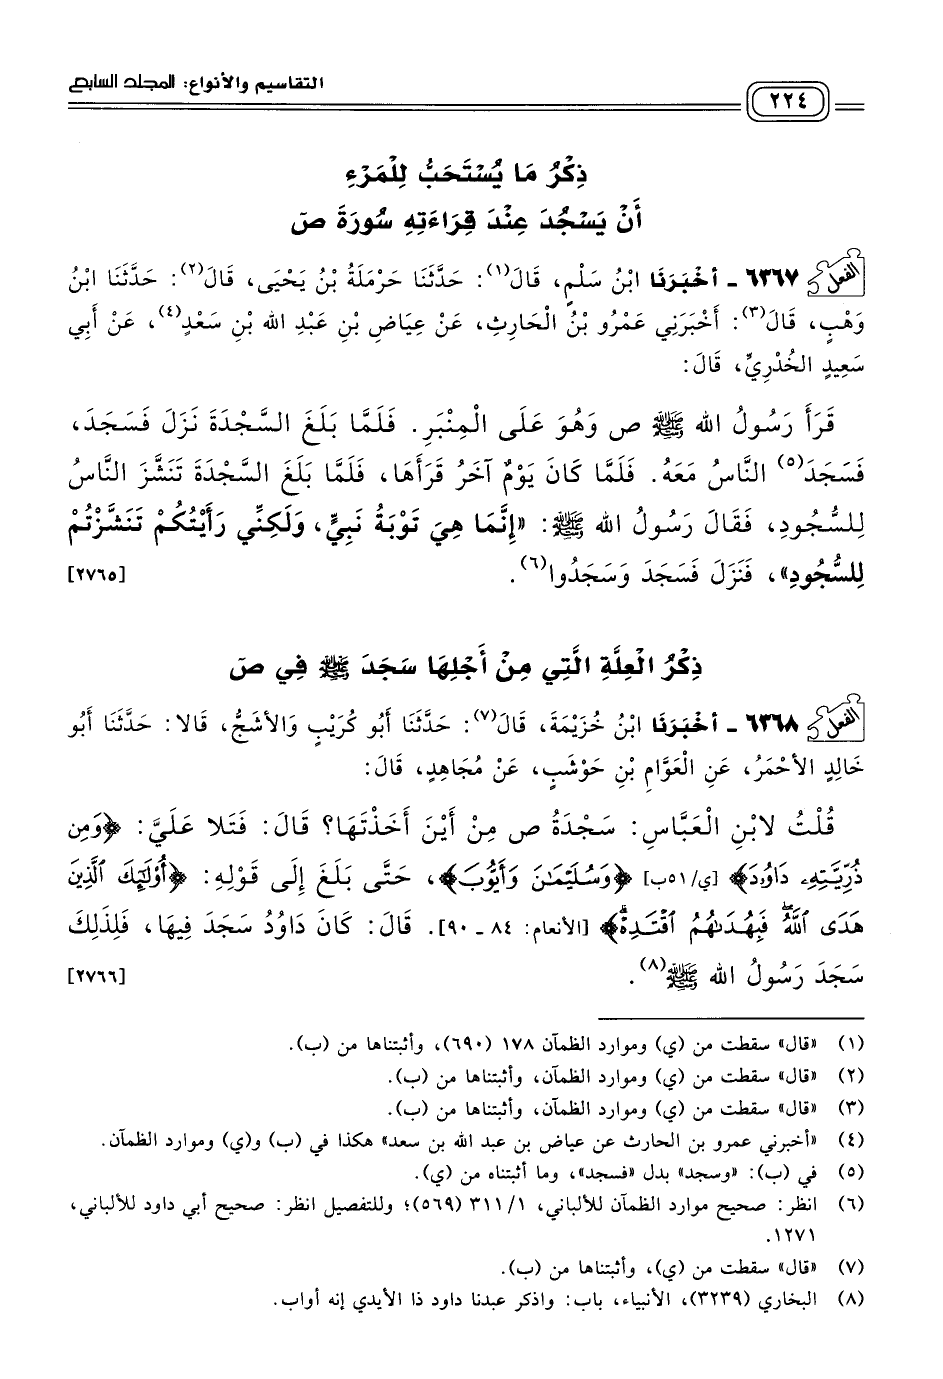 التقاسيم والأنواع: المجلد السابع
٢٢٤
ذِكْرُ مَا يُسْتَحَبُّ لِلْمَرْءِ
أَنْ يَسْجُدَ عِنْدَ قِرَاءَتِهِ سُورَةَ صَ
الفعل ٦٣٦٧ - أَخْبَرَنَا ابْنُ سَلْمٍ، قَالَ(١): حَدَّثَنَا حَرْمَلَةُ بْنُ يَحْيَى، قَالَ(٢): حَدَّثَنَا ابْنُ
وَهْبٍ، قَالَ(٣): أَخْبَرَنِي عَمْرُو بْنُ الْحَارِثِ، عَنْ عِيَاضِ بْنِ عَبْدِ الله بْنِ سَعْدٍ(٤)، عَنْ أَبِي
سَعِيدٍ الْخُدْرِيِّ، قَالَ:
قَرَأَ رَسُولُ الله ﷺ ص وَهُوَ عَلَى الْمِنْبَرِ. فَلَمَّا بَلَغَ السَّجْدَةَ نَزَلَ فَسَجَدَ،
فَسَجَدَ(٥) النَّاسُ مَعَهُ. فَلَمَّا كَانَ يَوْمٌ آخَرُ قَرَأَهَا، فَلَمَّا بَلَغَ السَّجْدَةَ تَنَشَّزَ النَّاسُ
لِلسُّجُودِ، فَقَالَ رَسُولُ الله ﷺ: «إِنَّمَا هِيَ تَوْبَةُ نَبِيٍّ، وَلَكِنِّي رَأَيْتُكُمْ تَنَشَّزْتُمْ
لِلسُّجُودِ»، فَنَزَلَ فَسَجَدَ وَسَجَدُوا(٦). [٢٧٦٥]
ذِكْرُ الْعِلَّةِ الَّتِي مِنْ أَجْلِهَا سَجَدَ ﷺ فِي صَ
الفعل ٦٣٦٨ - أَخْبَرَنَا ابْنُ خُزَيْمَةَ، قَالَ(٧): حَدَّثَنَا أَبُو كُرَيْبٍ وَالأَشَجُّ، قَالا: حَدَّثَنَا أَبُو
خَالِدٍ الأَحْمَرُ، عَنِ الْعَوَّامِ بْنِ حَوْشَبٍ، عَنْ مُجَاهِدٍ، قَالَ:
قُلْتُ لابْنِ الْعَبَّاسِ: سَجْدَةُ ص مِنْ أَيْنَ أَخَذْتَهَا؟ قَالَ: فَتَلا عَلَيَّ: ﴿وَمِن
ذُرِّيَّتِهِۦ دَاوُۥدَ﴾ [ي/٥١ب] ﴿وَسُلَيْمَٰنَ وَأَيُّوبَ﴾، حَتَّى بَلَغَ إِلَى قَوْلِهِ: ﴿أُوْلَٰٓئِكَ ٱلَّذِينَ
هَدَى ٱللَّهُۖ فَبِهُدَىٰهُمُ ٱقْتَدِهْۗ﴾ [الأنعام: ٨٤ - ٩٠]. قَالَ: كَانَ دَاوُدُ سَجَدَ فِيهَا، فَلِذَلِكَ
سَجَدَ رَسُولُ الله ﷺ(٨). [٢٧٦٦]
(١) «قال» سقطت من (ي) وموارد الظمآن ١٧٨ (٦٩٠)، وأثبتناها من (ب).
(٢) «قال» سقطت من (ي) وموارد الظمآن، وأثبتناها من (ب).
(٣) «قال» سقطت من (ي) وموارد الظمآن، وأثبتناها من (ب).
(٤) «أخبرني عمرو بن الحارث عن عياض بن عبد الله بن سعد» هكذا في (ب) و(ي) وموارد الظمآن.
(٥) في (ب): «وسجد» بدل «فسجد»، وما أثبتناه من (ي).
(٦) انظر: صحيح موارد الظمآن للألباني، ٣١١/١ (٥٦٩)؛ وللتفصيل انظر: صحيح أبي داود للألباني،
١٢٧١.
(٧) «قال» سقطت من (ي)، وأثبتناها من (ب).
(٨) البخاري (٣٢٣٩)، الأنبياء، باب: واذكر عبدنا داود ذا الأيدي إنه أواب.